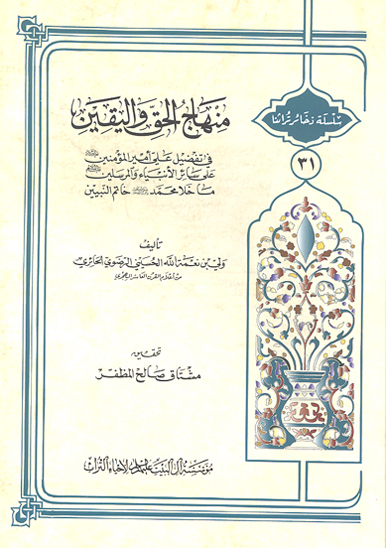 سلسلة ذخائر تراثنا
٣١
منهاج الحق واليقين
في تفضيل علي أمير المؤمنين
على سائر الأنبياء والمرسلين
ما خلا محمد خاتم النبيين
تأليف
ولي بن نعمة الله الحسيني الرضوي الحائري
من أعلام القرن العاشر الهجري
تحقيق
مشتاق صالح المظفر
مؤسسة آل البيت لإحياء التراث